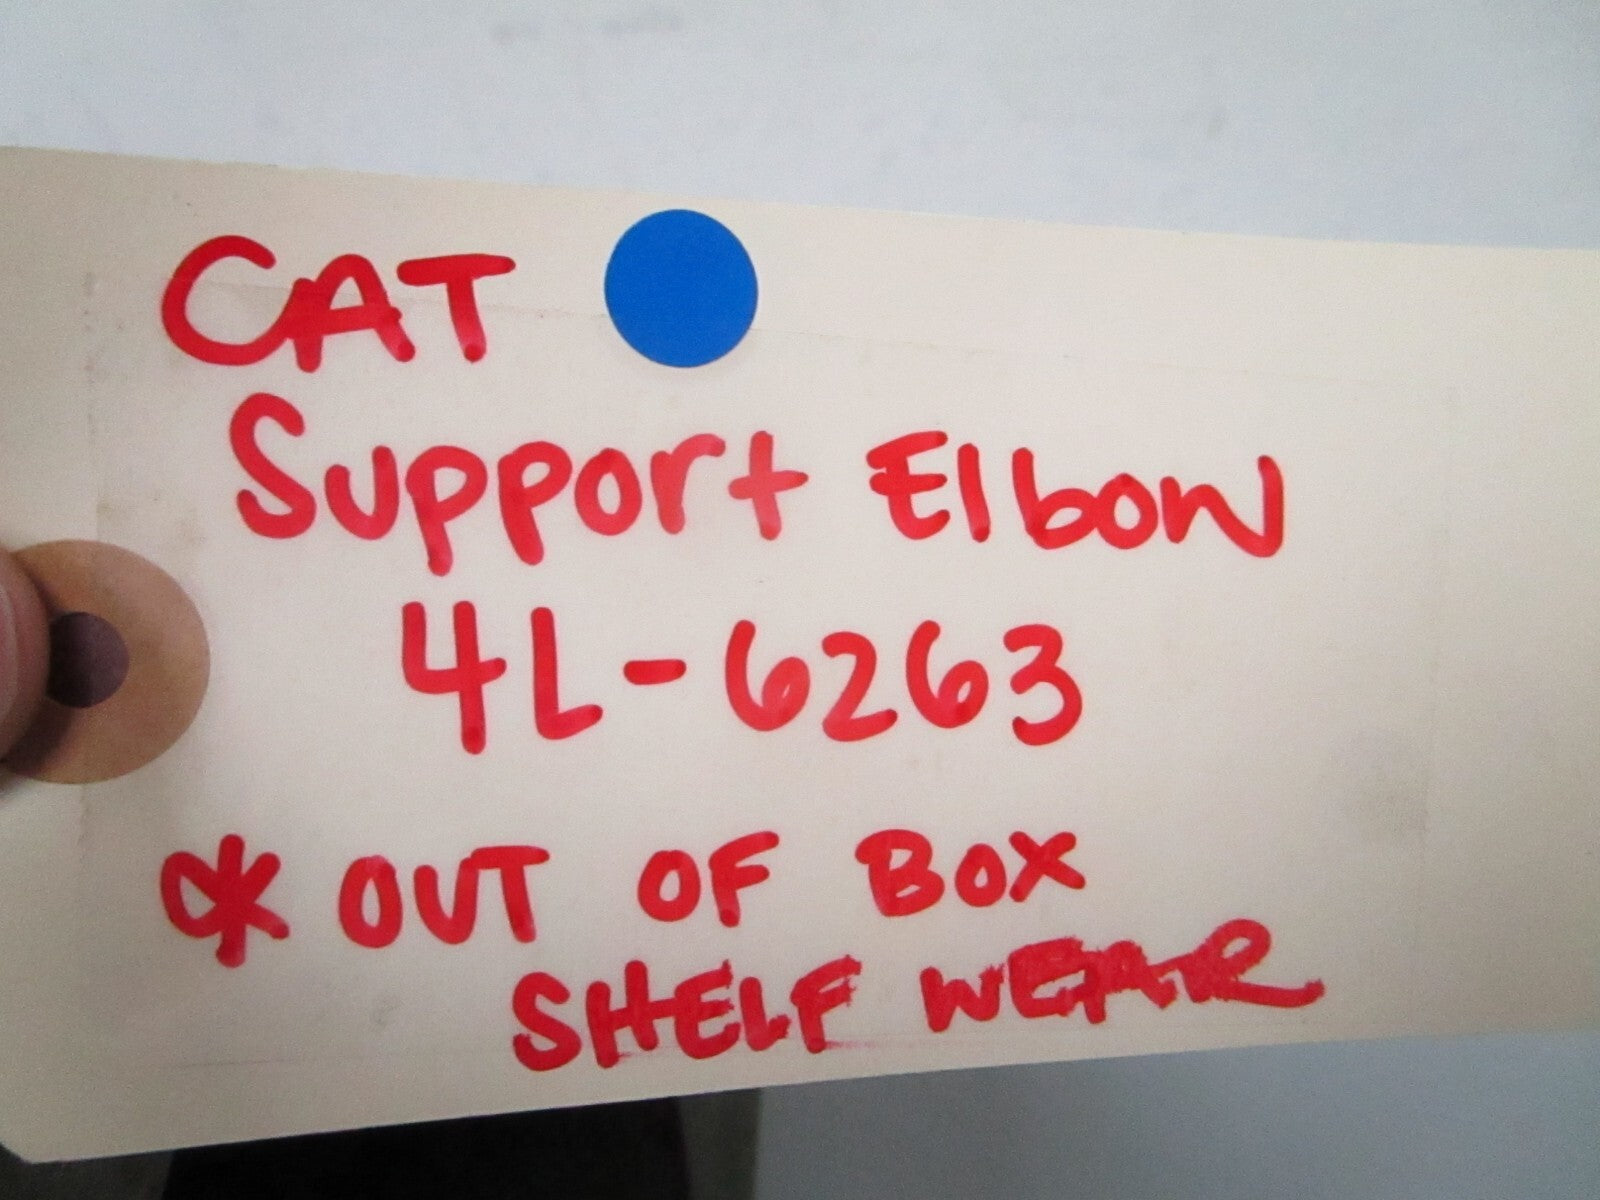 CAT
Support Elbow
4L-6263
* OUT OF BOX
SHELF WEAR